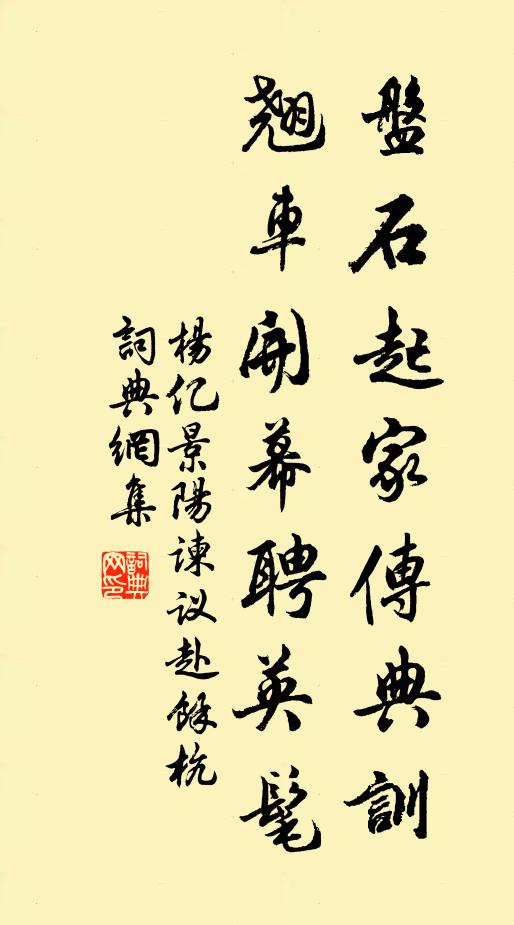 盤石起家傳典訓
翹車開幕聘英髦
楊亿景陽諫议赴餘杭
詞典網集
詞典网印